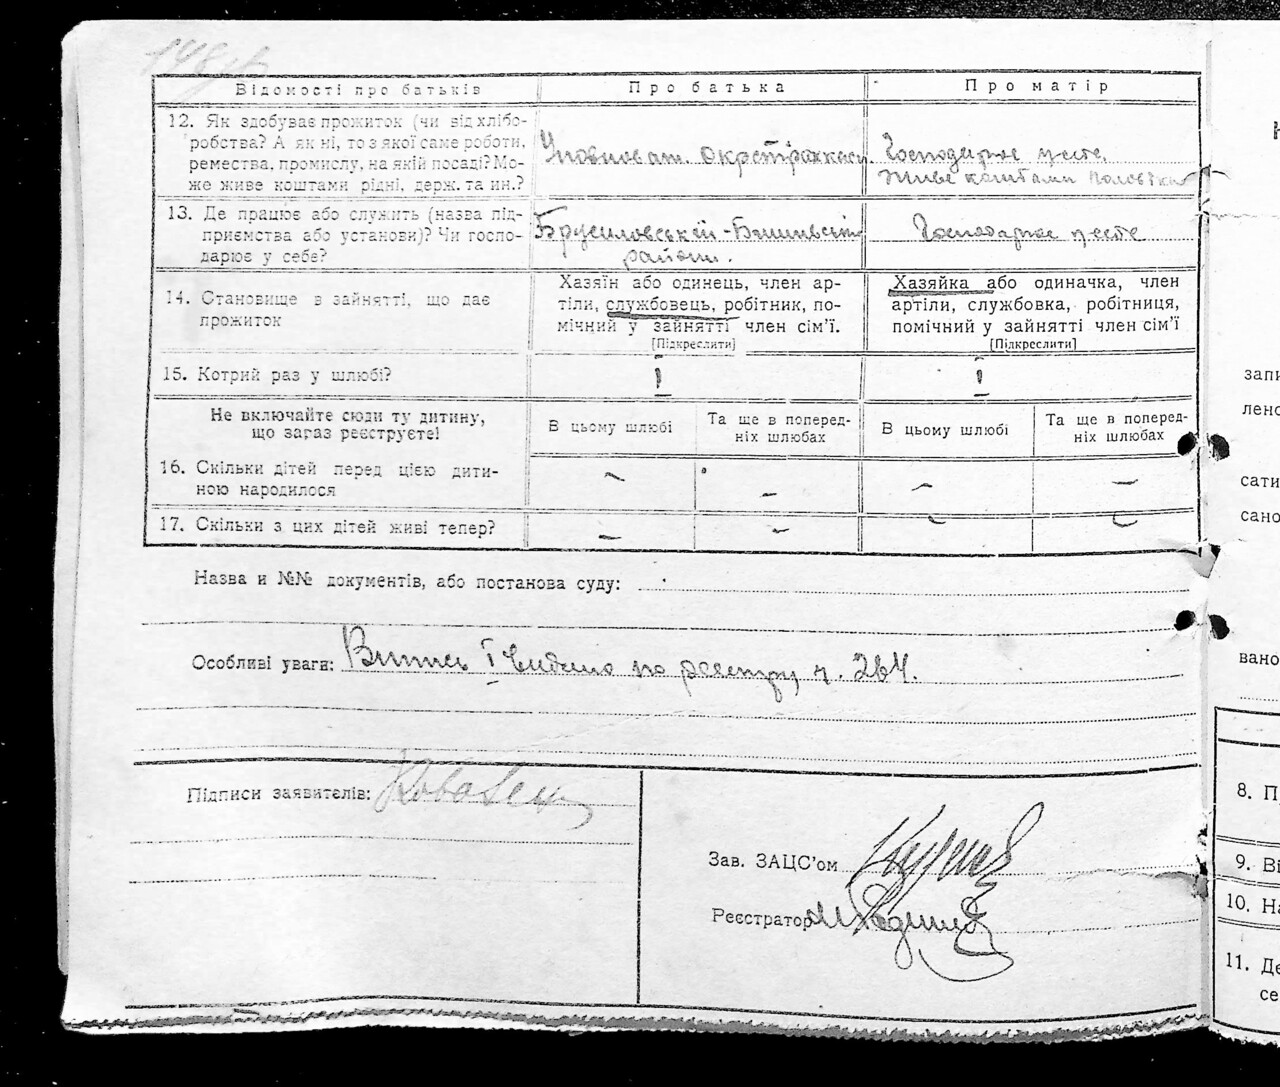 148
Відомості про батьків Про батька Про матір
12. Як здобуває прожиток (чи від хлібо-
робства? А як ні, то з якої саме роботи,
ремества, промислу, на якій посаді? Мо-
же живе коштами рідні, держ. та ин.?
Уповноваж. Окрстрахкаси.
Господарює
живе коштами
13. Де працює або служить (назва під-
приємства або установи)? Чи госпо-
дарює у себе?
Брусиловській-
районі.
Господарює
14. Становище в зайнятті, що дає
прожиток
Хазяїн або одинець, член ар-
тіли, службовець, робітник, по-
мічний у зайнятті член сім'ї.
[Підкреслити]
Хазяйка або одиначка, член
артіли, службовка, робітниця,
помічний у зайнятті член сім'ї
[Підкреслити]
15. Котрий раз у шлюбі? I I
Не включайте сюди ту дитину,
що зараз реєструєте!
В цьому шлюбі
Та ще в поперед-
ніх шлюбах
В цьому шлюбі
Та ще в поперед-
ніх шлюбах
16. Скільки дітей перед цією дити-
ною народилося
– – – –
17. Скільки з цих дітей живі тепер? – – – –
Назва и №№ документів, або постанова суду:
Особливі уваги: Випись I видано по реєстру ч. 264.
Підписи заявителів:
Зав. ЗАЦС'ом
Реєстратор
запи
лено
сати
сано
вано
8. П
9. Ві
10. На
11. Де
се